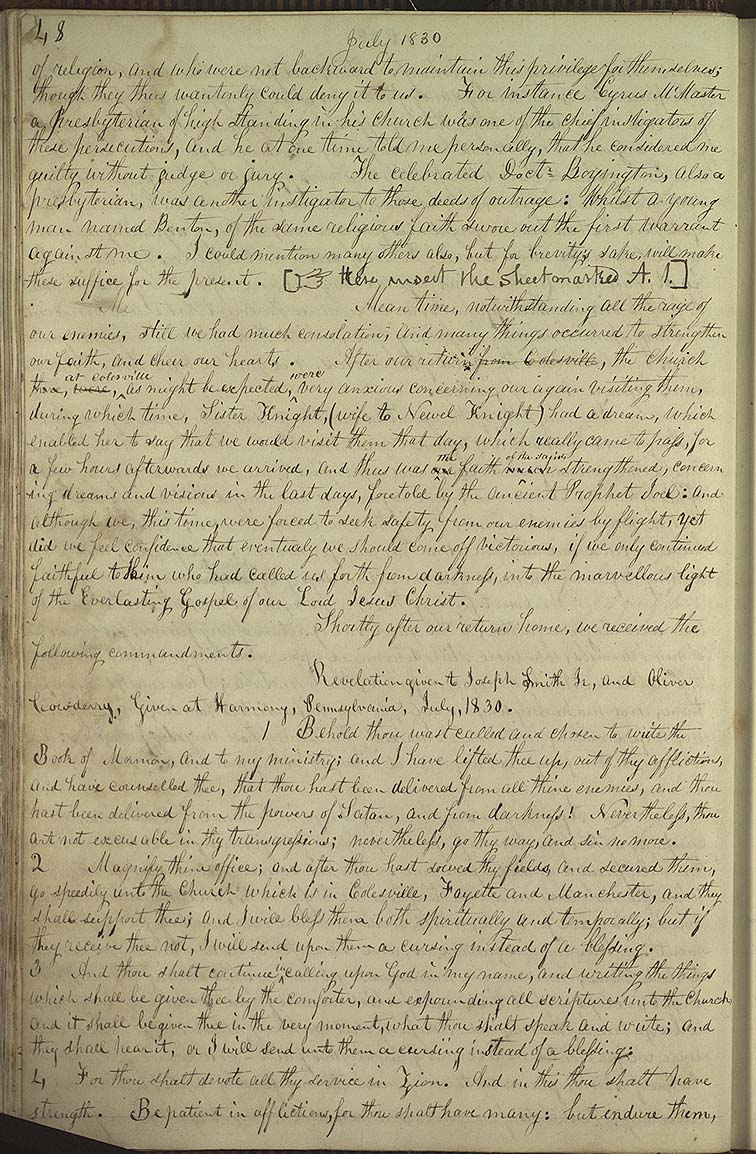 48
July 1830
of religion, and who were not backward to maintain this privilege for themselves;
though they thus wantonly could deny it to us. For instance Cyrus McMaster
a Presbyterian of high standing in his church was one of the chief instigators of
these persecutions, and he at one time told me personally, that he considered me
guilty without judge or jury. The celebrated Doctr Boyington, also a
presbyterian, was another instigator to those deeds of outrage: Whilst a young
man named Benton, of the same religious faith swore out the first warrant
against me. I could mention many others also, but for brevity's sake, will make
these suffice for the present. [☞ Here insert the sheet marked A. 1.]
Mean time, notwithstanding all the rage of
our enemies, still we had much consolation, and many things occurred to strengthen
our faith, and cheer our hearts. After our return from Colesville, the church
at Colesville were
there, were, as might be expected, very anxious concerning our again visiting them,
during which time, Sister Knight, (wife to Newel Knight) had a dream, which
enabled her to say that we would visit them that day, which really came to pass, for
the of the saints
a few hours afterwards we arrived, and thus was our faith much strengthened, concern
ing dreams and visions in the last days, foretold by the ancient Prophet Joel: and
although we, this time, were forced to seek safety from our enemies by flight, yet
did we feel confidence that eventualy we should come off victorious, if we only continued
faithful to him who had called us forth from darkness, into the marvellous light
of the Everlasting Gospel of our Lord Jesus Christ.
Shortly after our return home, we received the
following commandments.
Revelation given to Joseph Smith Jr, and Oliver
Cowderry, Given at Harmony, Pennsylvania, July, 1830.
1 Behold thou wast called and chosen to write the
Book of Mormon, and to my ministry; and I have lifted thee up, out of thy afflictions,
and have counselled thee, that thou hast been delivered from all thine enemies, and thou
hast been delivered from the powers of Satan, and from darkness! Nevertheless, thou
art not excusable in thy transgressions; nevertheless, go thy way, and sin no more.
2 Magnify thine office; and after thou hast sowed thy fields, and secured them,
go speedily unto the Church which is in Colesville, Fayette and Manchester, and they
shall support thee; and I will bless them both spiritually and temporally; but if
they receive thee not, I will send upon them a cursing instead of a blessing.
in
3 And thou shalt continue calling upon God in my name, and writing the things
which shall be given thee by the comforter, and expounding all scriptures unto the Church,
and it shall be given thee in the very moment, what thou shalt speak and write; and
they shall hear it, or I will send unto them a cursing instead of a blessing:
4 For thou shalt devote all thy service in Zion. And in this thou shalt have
strength. Be patient in afflictions, for thou shalt have many: but endure them,